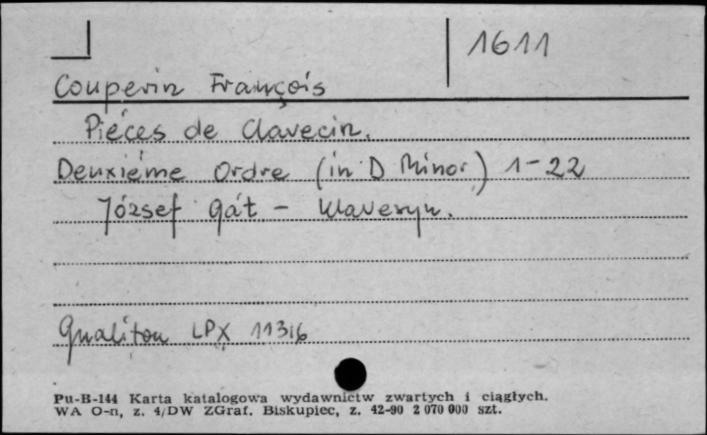 1611
Couperin François
Pièces de Clavecin.
Deuxième Ordre (in D Minor) 1-22
József Gát - klawesyn.
Qualiton LPX 11316
Pu-B-144 Karta katalogowa wydawnictw zwartych i ciągłych.
WA O-n, z. 4/DW ZGraf. Biskupiec, z. 42-90 2 070 000 szt.